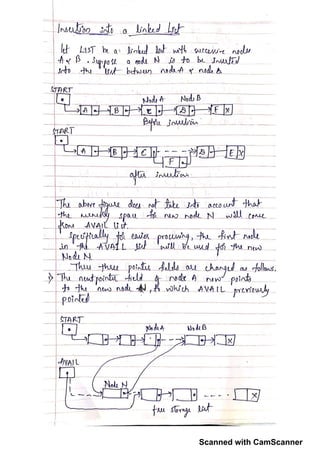 Insertion into a linked list
let LIST be a linked list with successive nodes
A & B. Suppose a node N is to be inserted
into the list between node A & node B
START
Node A Node B
A B C D E X
Before insertion
START
A B C D E X
F
after insertion
The above figure does not take into account that
the memory space for new node N will come
from AVAIL list.
Specifically for easier processing, the first node
in the AVAIL list will be used for the new
Node N
Thus three pointer fields are changed as follows.
The next pointer field of node A now points
to the new node N, to which AVAIL previously
pointed
START
Node A Node B
X
AVAIL
Node N
X
free storage list
Scanned with CamScanner